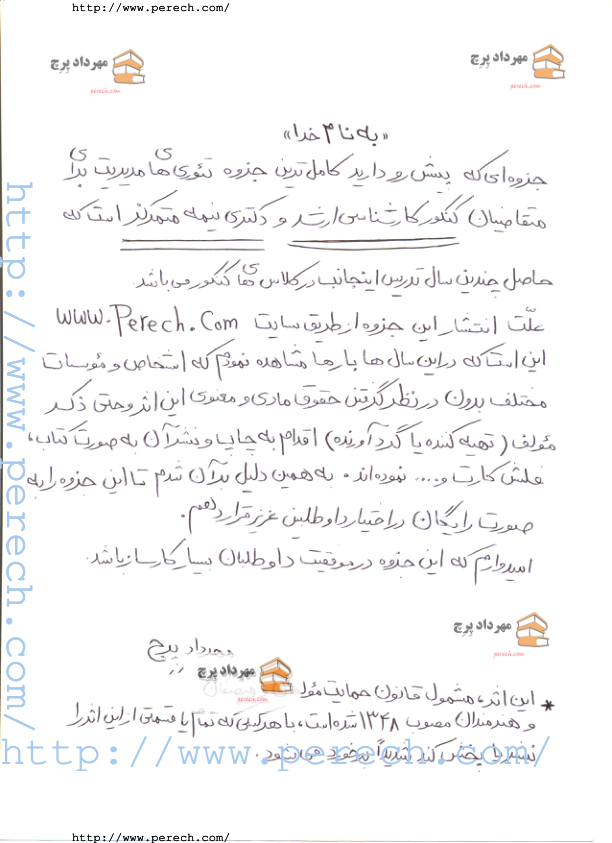 http://www.perech.com/
مهرداد پرچ
perech.com
مهرداد پرچ
perech.com
«به نام خدا»
جزوه‌ای که پیش رو دارید کامل‌ترین جزوه تئوری‌های مدیریت برای
متقاضیان کنکور کارشناسی ارشد و دکتری نیمه متمرکز است که
حاصل چندین سال تدریس اینجانب در کلاس‌های کنکور می‌باشد.
علّت انتشار این جزوه از طریق سایت www.Perech.Com
این است که در این سال‌ها بارها مشاهده نمودم که اشخاص و مؤسسات
مختلف بدون در نظر گرفتن حقوق مادی و معنوی این اثر و حتی ذکر
مؤلف (تهیه کننده یا گردآورنده) اقدام به چاپ و نشر آن به صورت کتاب،
فلش کارت و .... نموده‌اند. به همین دلیل بر آن شدم تا این جزوه را به
صورت رایگان در اختیار داوطلبین عزیز قرار دهم.
امیدوارم که این جزوه در موفقیت داوطلبان بسیار کارساز باشد.
مهرداد پرچ
perech.com
مهرداد پرچ
مهرداد پرچ
perech.com
* این اثر، مشمول قانون حمایت مؤل
و هنرمندان مصوب ۱۳۴۸ شده است، با هر کسی که تمام یا قسمتی از این اثر را
نشر یا پخش کند شدیداً برخورد می‌شود.
http://www.perech.com/
http://www.perech.com/
http://www.perech.com/